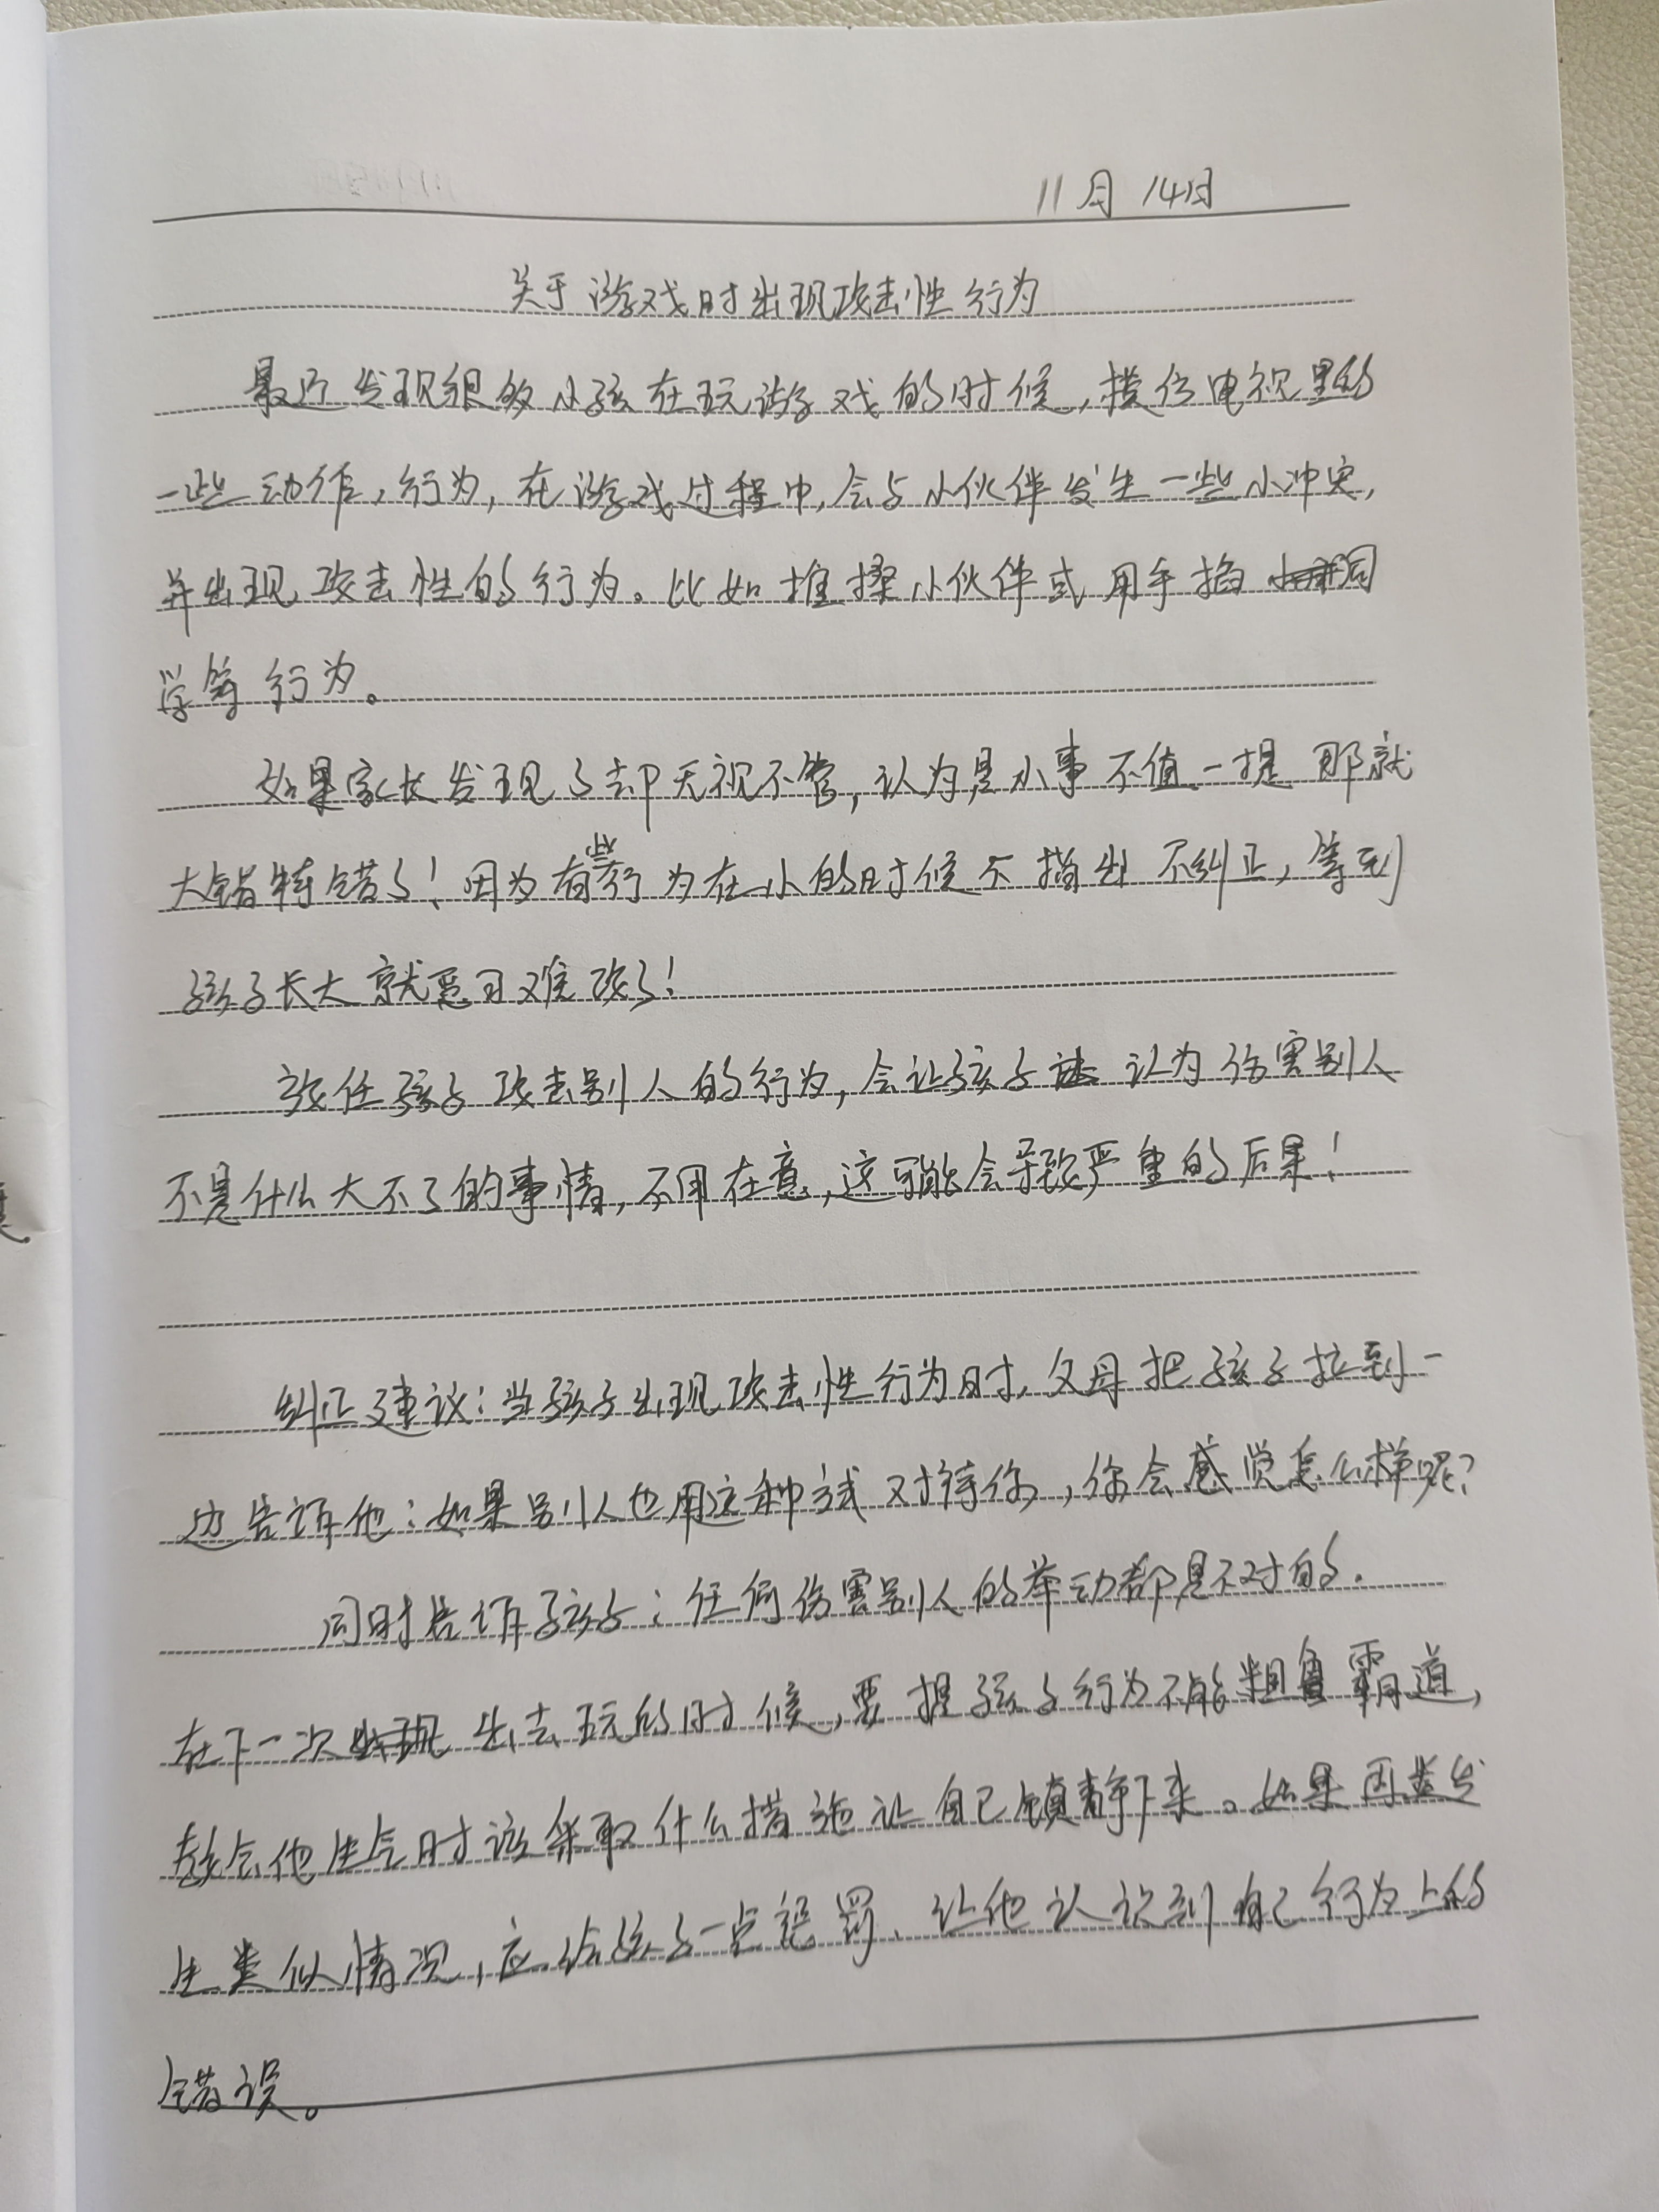 11月14日
关于游戏时出现攻击性行为
最近发现很多小孩在玩游戏的时候,模仿电视里的
一些动作,行为,在游戏过程中,会与小伙伴发生一些小冲突,
并出现攻击性的行为。比如推搡小伙伴或用手掐同
学等行为。
如果家长发现了却无视不管,认为是小事不值一提 那就
大错特错了!因为有些行为在小的时候不指出 不纠正,等到
孩子长大就恶习难改了!
放任孩子攻击别人的行为,会让孩子认为伤害别人
不是什么大不了的事情,不用在意,这可能会导致严重的后果!
纠正建议:当孩子出现攻击性行为时,父母把孩子拉到一
边告诉他:如果别人也用这种方式对待你,你会感觉怎么样呢?
同时告诉孩子:任何伤害别人的举动都是不对的.
在下一次出去玩的时候,要提孩子行为不能粗鲁霸道,
教会他生气时该采取什么措施让自己镇静下来。如果再发
生类似情况,应给孩子一点惩罚、让他认识到自己行为上的
错误。